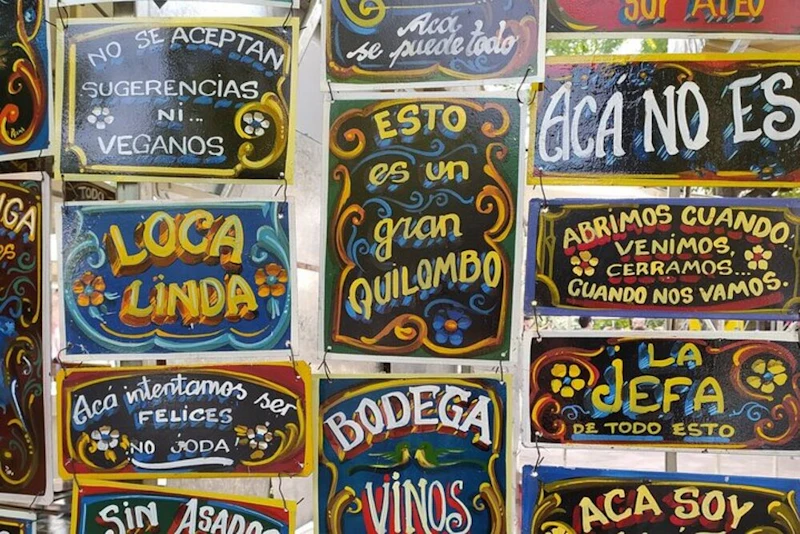 NO SE ACEPTAN
SUGERENCIAS
NI...
VEGANOS
LOCA
LINDA
Acá intentamos ser
FELICES
NO JODA!
SIN ASADO
Acá
se puede todo
ESTO
es un
gran
QUILOMBO
BODEGA
VINOS
SOY ATEO
ACÁ NO ES
ABRIMOS CUANDO..
VENIMOS,
CERRAMOS...
CUANDO NOS VAMOS.
¡LA
JEFA
DE TODO ESTO
ACA SOY
TODO